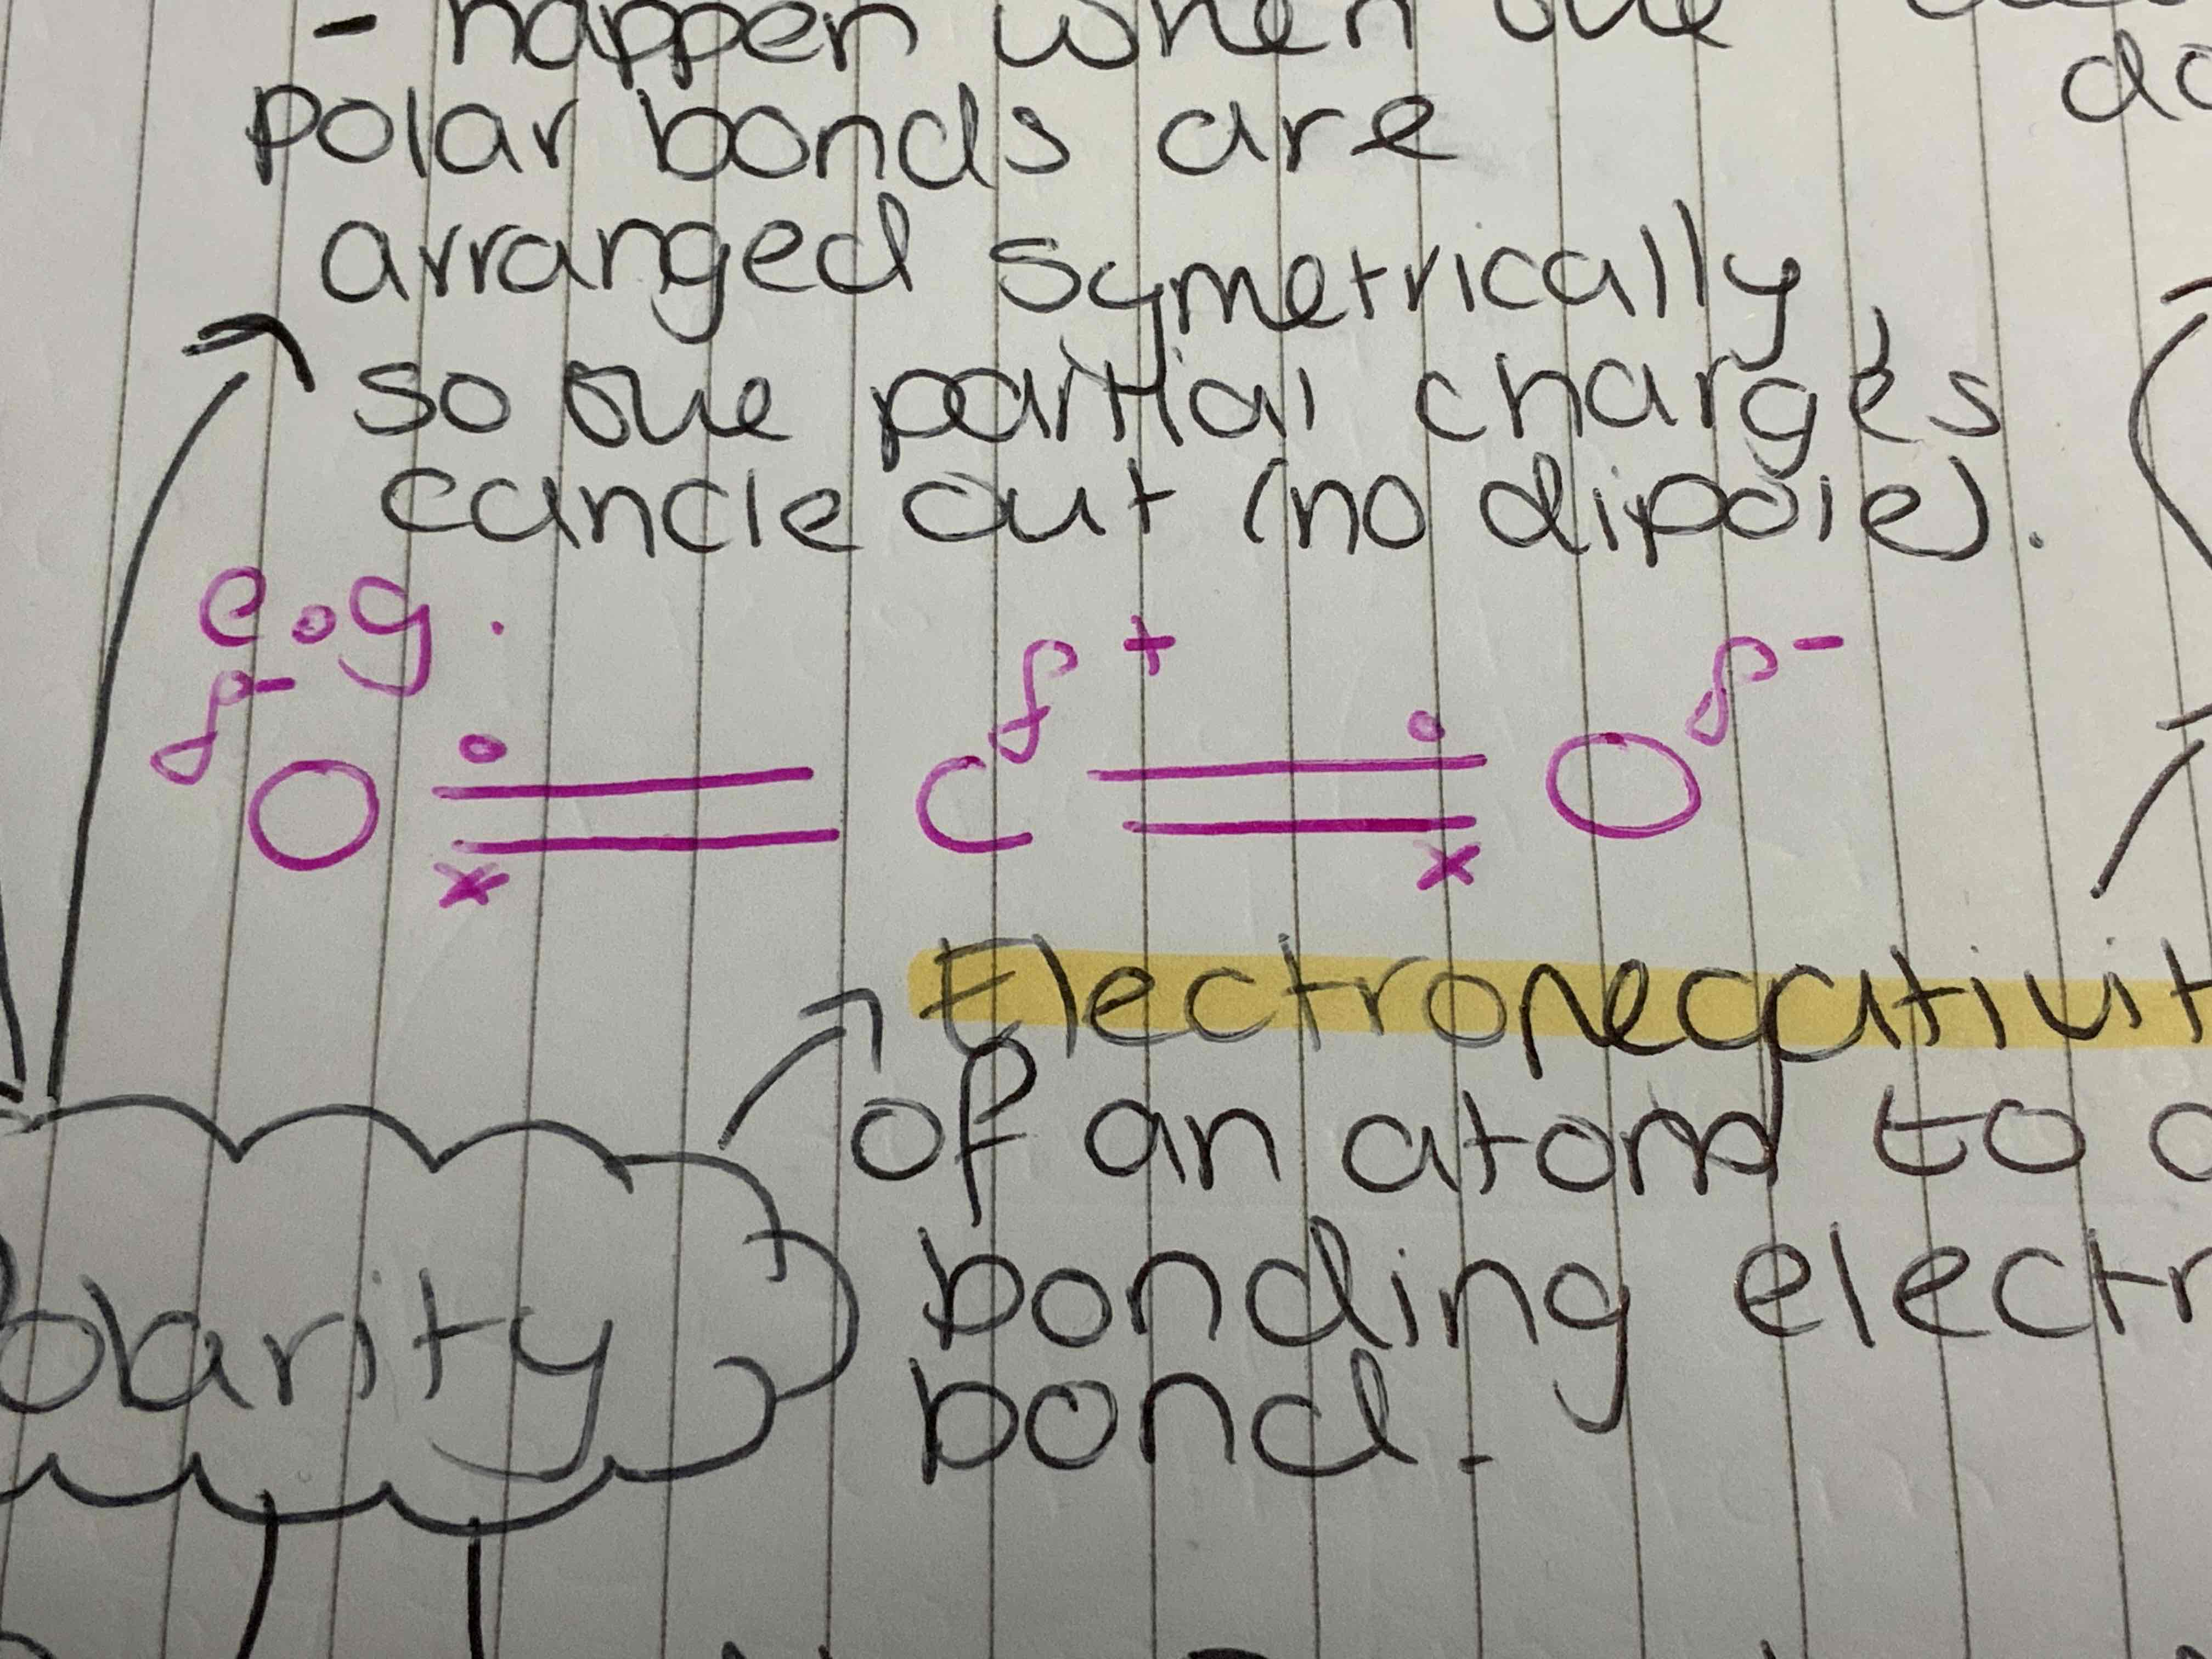 - happen when the
polar bonds are
arranged symetrically,
so the partial charges
cancle out (no dipole).
e.g.
δ- O = C δ+ = O δ-
Electronegativit
of an atom to
bonding electr
bond.
olarity